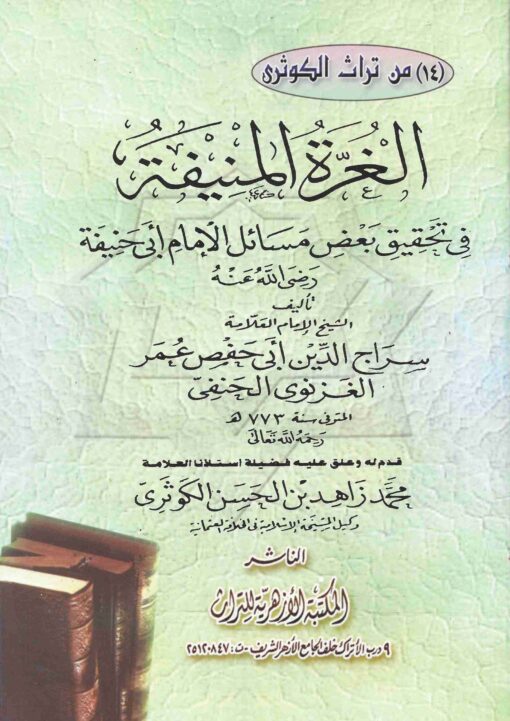 (١٤) من تراث الكوثرى
الغُرَّةُ المُنِيفَةُ
فِي تَحْقِيقِ بَعْضِ مَسَائِلِ الإِمَامِ أَبِي حَنِيفَة
رَضِيَ اللَّهُ عَنْهُ
تأليف
الشيخ الإمام العلامة
سِرَاج الدِّين أَبِى حَفْصٍ عُمَر
الغَزنَوى الحَنَفِىّ
المتوفى سنة ٧٧٣ هـ
رَحِمَهُ اللَّه تَعَالَى
قدم له وعلق عليه فضيلة أستاذنا العلامة
مُحَمَّد زَاهِد بْن الحَسَن الكَوثَرِىّ
وكيل المشيخة الإسلامية فى الخلافة العثمانية
الناشر
المكتبة الأزهرية للتراث
٩ درب الأتراك خلف الجامع الأزهر الشريف - ت: ٢٥١٢٠٨٤٧